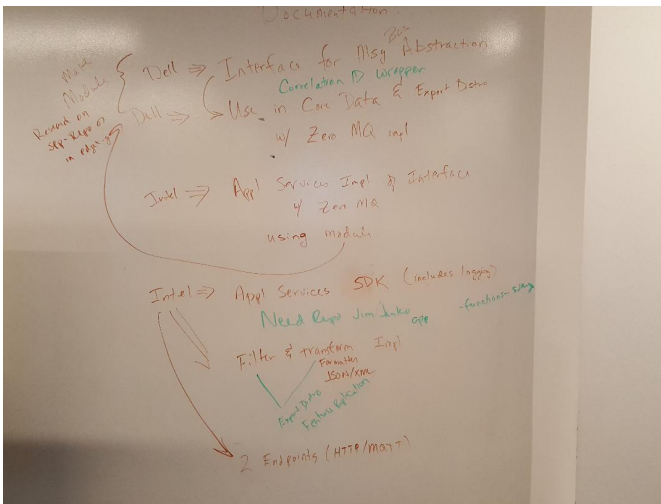 Documentation
Make
Module
Research on
sep-Repo or
in edgex-go
Dell ⇒ Interface for Msg Bus Abstraction
Correlation ID Wrapper
Dell ⇒ Use in Core Data & Export Distro
w/ Zero MQ impl
Intel ⇒ Appl Services Impl of Interface
w/ Zero MQ
using module
Intel ⇒ Appl Services SDK (includes logging)
Need Repo Jim/
app -functions-
Filter & transform Impl
Formatter
JSON/XML
Export Distro
Feature Replication
2 Endpoints (HTTP/MQTT)